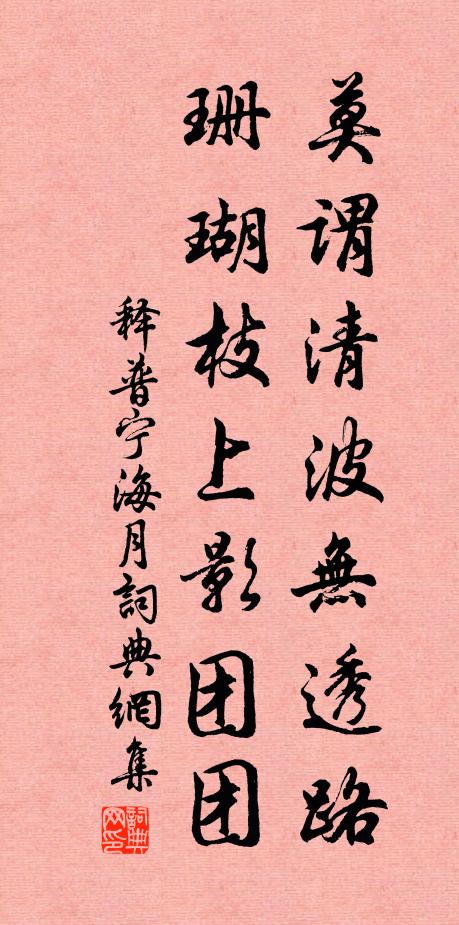 莫謂清波無透路
珊瑚枝上影团团
释普宁海月詞典網集
詞典网印